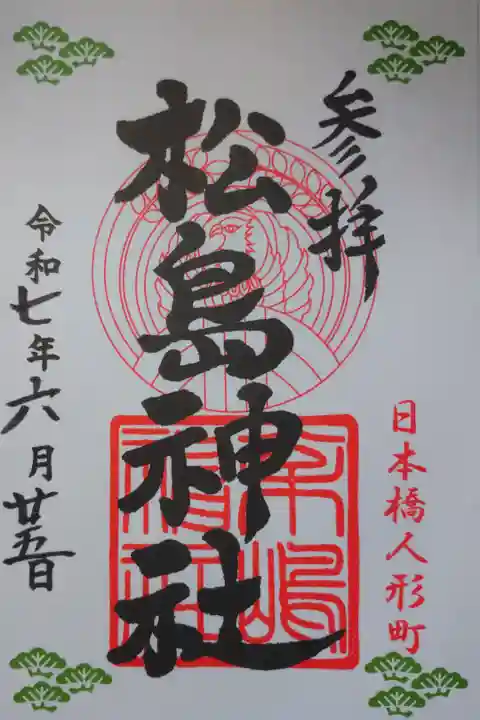 参拝
日本橋人形町
松島神社
松嶋神社
令和七年六月廿五日